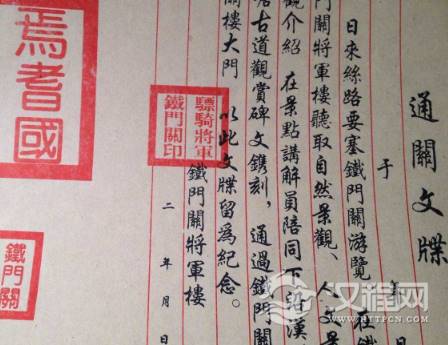 通關文牒
于 年 月
日來絲路要塞鐵門關游覽 在鐵
門關將軍樓聽取自然景觀、人文景
觀介紹 在景點講解員陪同下沿漢
唐古道觀賞碑文鐫刻，通過鐵門關
關樓大門 以此文牒留爲紀念。
鐵門關將軍樓
二 年 月 日
驃騎將軍
鐵門關印
焉耆國
鐵門關
汉程网
HTTPCN.COM